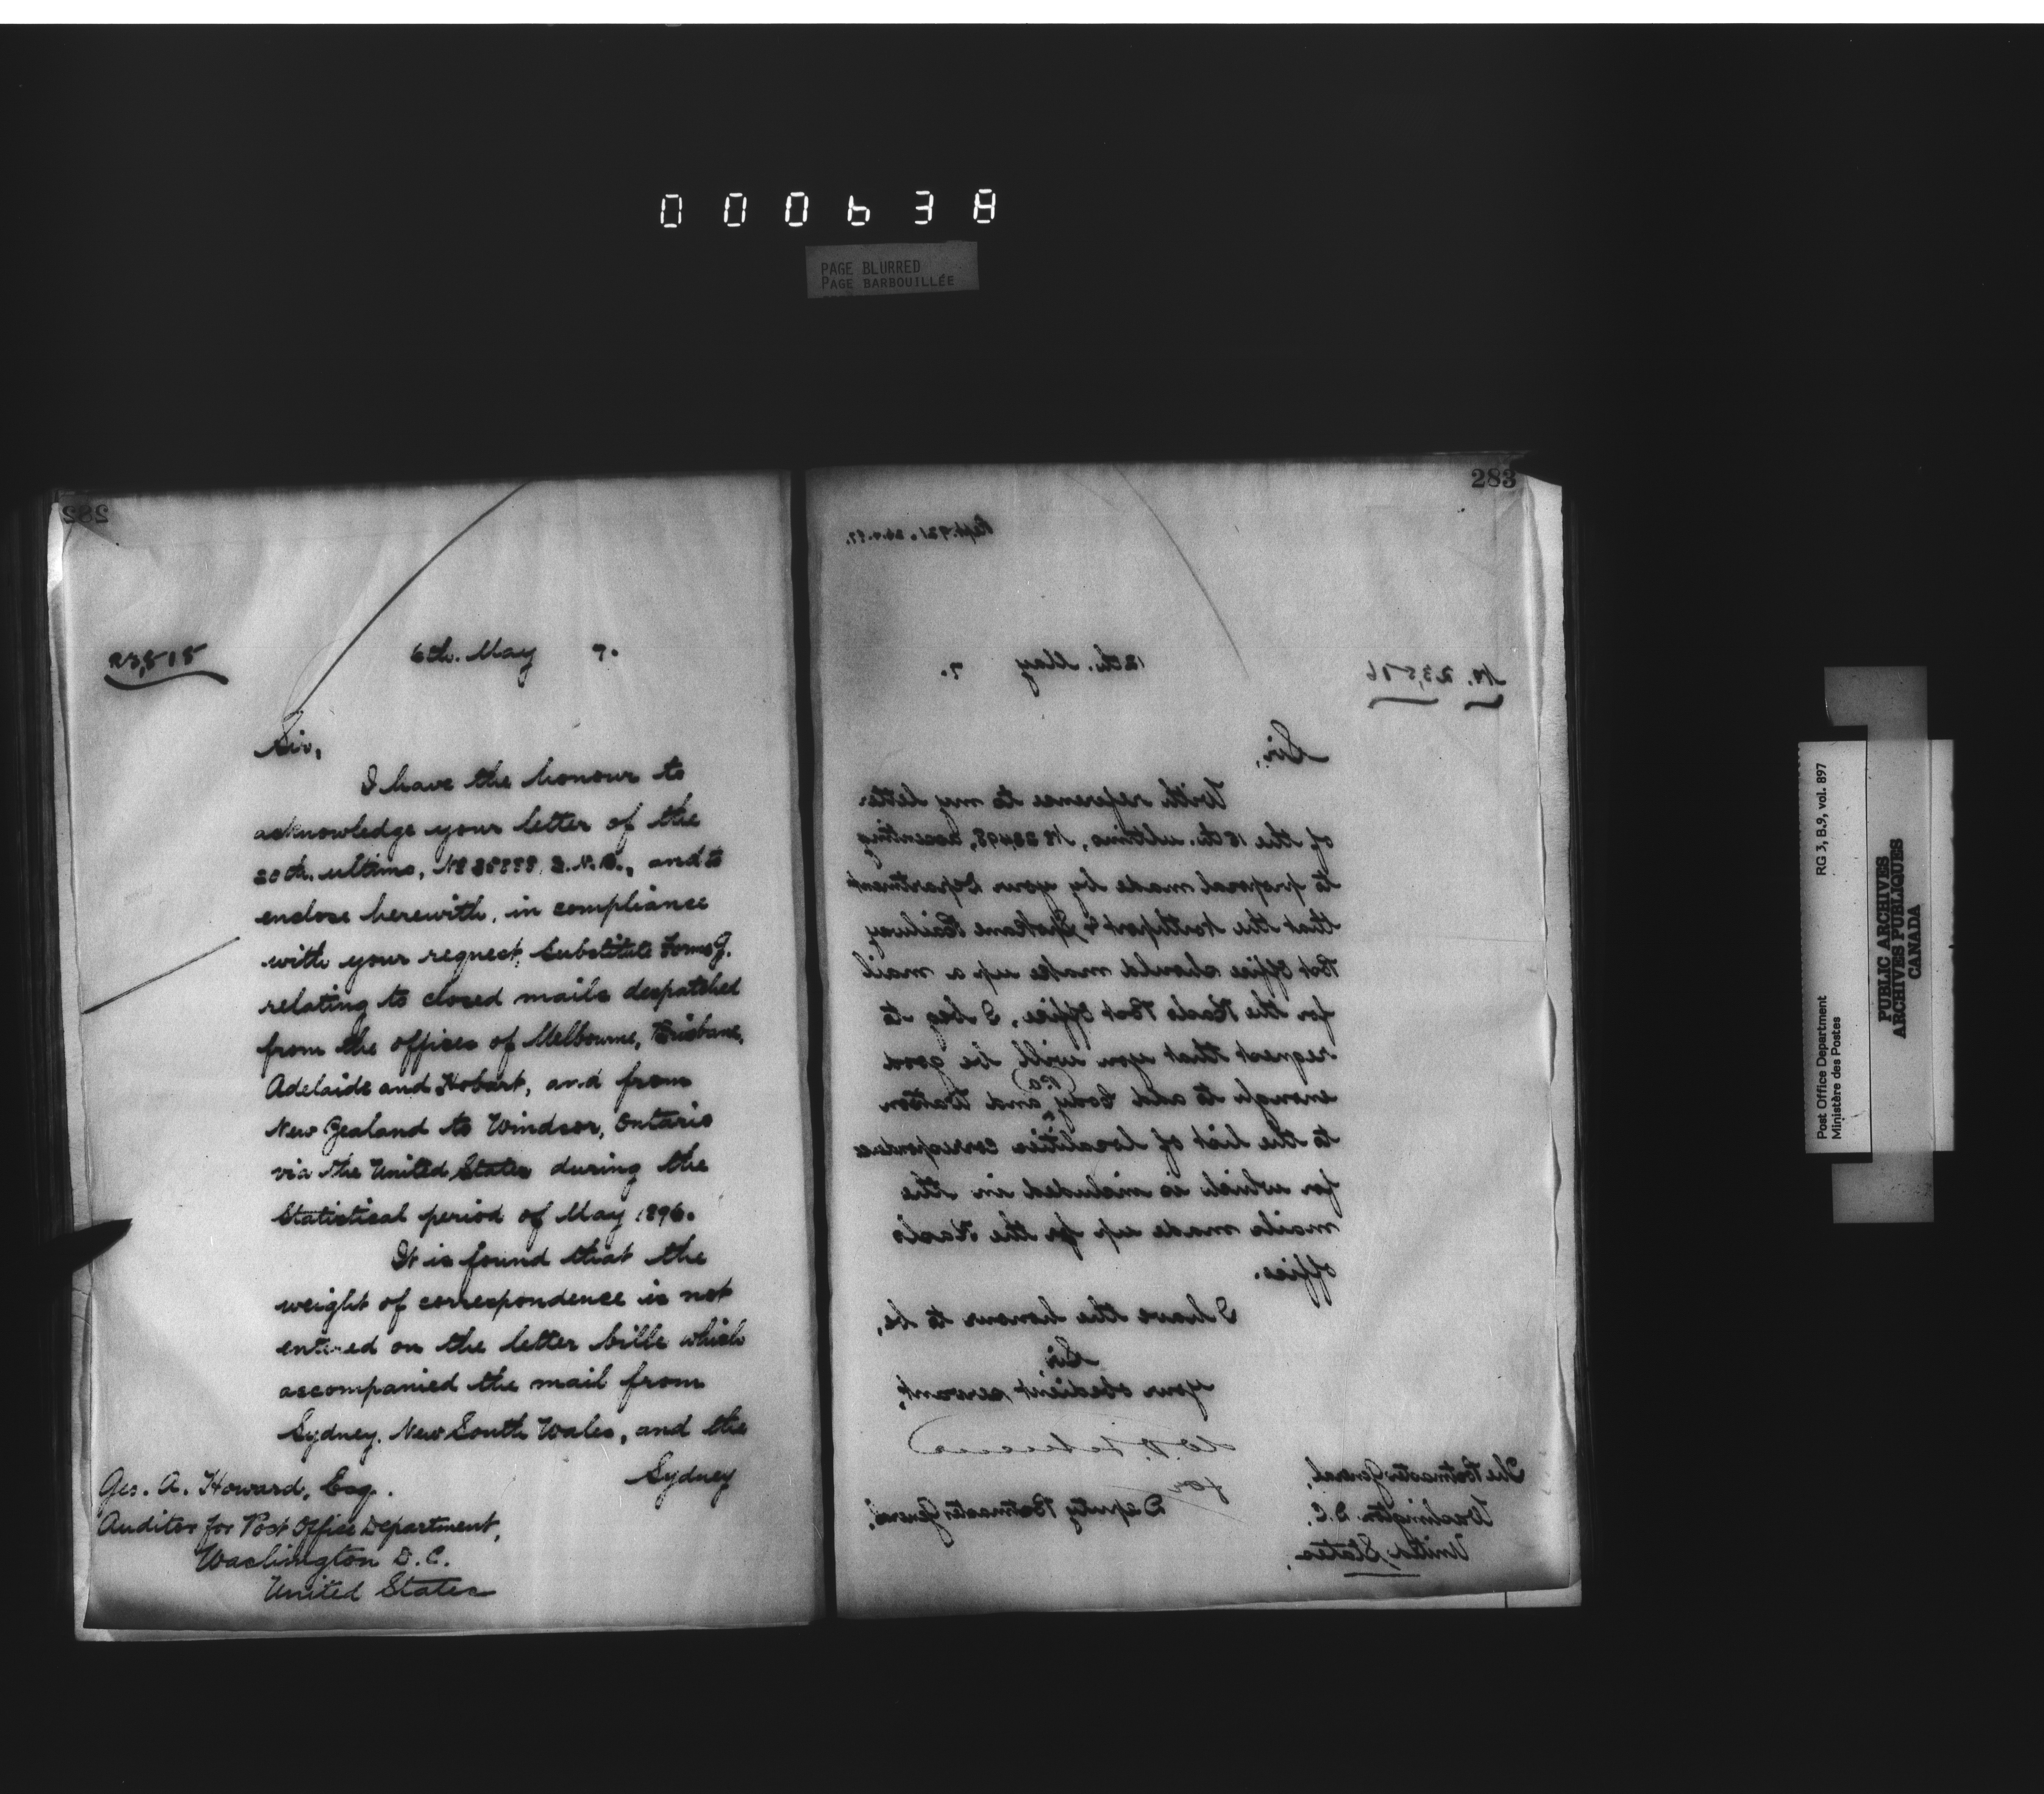 000638
PAGE BLURRED
PAGE BARBOUILLÉE
282
23,515
6th. May 7.
Sir,
I have the honour to
acknowledge your letter of the
20th. ultimo, and to
enclose herewith, in compliance
with your request, Substitute Forms
relating to closed mails despatched
from the offices of Melbourne, Brisbane,
Adelaide and Hobart, and from
New Zealand to Windsor, Ontario
via the United States during the
Statistical period of May 1896.
It is found that the
weight of correspondence is not
entered on the letter bills which
accompanied the mail from
Sydney, New South Wales, and the
Sydney
Geo. A. Howard, Esq.
Auditor for Post Office Department,
Washington D.C.
United States
283
No. 23,516
12th. May 7.
Sir,
With reference to my letter
of the 15th. ultimo, No 23498, assenting
to proposal made by your Department
that the Northport & Spokane Railway
Post Office should make up a mail
for the Kaslo Post Office, I beg to
request that you will be good
enough to add Cody and Watson
to the list of localities correspondence
for which is included in the
mails made up for the Kaslo
office.
I have the honour to be,
Sir,
Your obedient servant,
for
Deputy Postmaster General.
The Postmaster General,
Washington D.C.
United States.
Post Office Department
Ministère des Postes
RG 3, B.9, vol. 897
PUBLIC ARCHIVES
ARCHIVES PUBLIQUES
CANADA